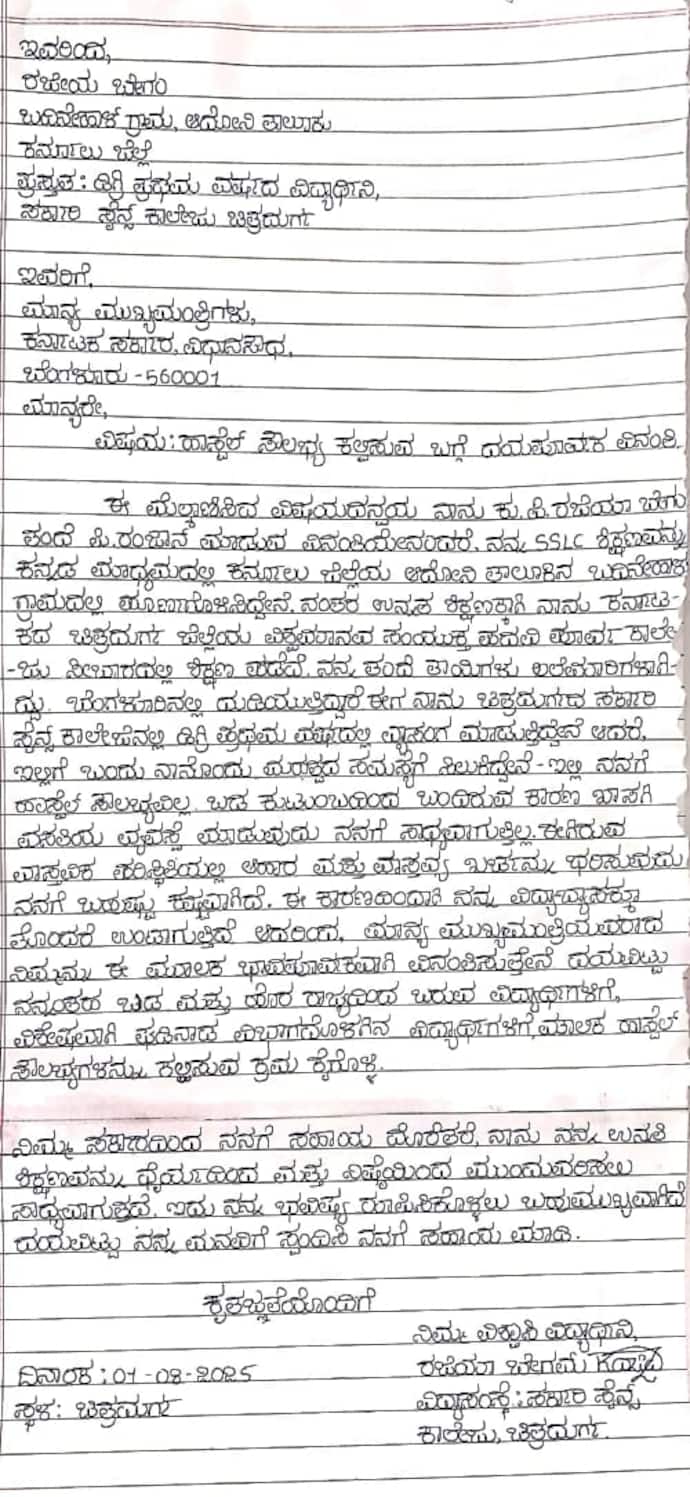 ಇವರಿಂದ,
ರಜೇಯ ಬೇಗಂ
ಬದಿನೇಹಾಳ್ ಗ್ರಾಮ, ಆದೋನಿ ತಾಲೂಕು
ಕರ್ನೂಲು ಜಿಲ್ಲೆ
ಪ್ರಸ್ತುತ: ಡಿಗ್ರಿ ಪ್ರಥಮ ವರ್ಷದ ವಿದ್ಯಾರ್ಥಿನಿ,
ಸರ್ಕಾರಿ ಸೈನ್ಸ್ ಕಾಲೇಜು ಚಿತ್ರದುರ್ಗ
ಇವರಿಗೆ,
ಮಾನ್ಯ ಮುಖ್ಯಮಂತ್ರಿಗಳು,
ಕರ್ನಾಟಕ ಸರ್ಕಾರ, ವಿಧಾನಸೌಧ,
ಬೆಂಗಳೂರು - 560001
ಮಾನ್ಯರೇ,
ವಿಷಯ: ಹಾಸ್ಟೆಲ್ ಸೌಲಭ್ಯ ಕಲ್ಪಿಸುವ ಬಗ್ಗೆ ದಯಪೂರ್ವಕ ವಿನಂತಿ.
ಈ ಮೆಲ್ಕಾಣಿಸಿದ ವಿಷಯದನ್ವಯ ನಾನು ಕು.ಪಿ.ರಜೆಯಾ ಬೆಗು
ತಂದೆ ಪಿ.ರಂಜಾನ್ ಮಾಡುವ ವಿನಂತಿಯೇನಂದರೆ, ನನ್ನ SSLC ಶಿಕ್ಷಣವನ್ನು
ಕನ್ನಡ ಮಾಧ್ಯಮದಲ್ಲಿ ಕರ್ನೂಲು ಜಿಲ್ಲೆಯ ಆದೋನಿ ತಾಲೂಕಿನ ಬದಿನೇಹಾಳ
ಗ್ರಾಮದಲ್ಲಿ ಪೂರ್ಣಗೊಳಿಸಿದ್ದೇನೆ. ನಂತರ ಉನ್ನತ ಶಿಕ್ಷಣಕ್ಕಾಗಿ ನಾನು ಕರ್ನಾಟ-
ಕದ ಚಿತ್ರದುರ್ಗ ಜಿಲ್ಲೆಯ ವಿಶ್ವಮಾನವ ಸಂಯುಕ್ತ ಪದವಿ ಪೂರ್ವ ಕಾಲೇ
-ಜು ಸೀಬಾರದಲ್ಲಿ ಶಿಕ್ಷಣ ಪಡೆದೆ. ನನ್ನ ತಂದೆ ತಾಯಿಗಳು ಅಲೆಮಾರಿಗಳಾಗಿ-
ದ್ದು. ಬೆಂಗಳೂರಿನಲ್ಲಿ ದುಡಿಯುತ್ತಿದ್ದಾರೆ ಈಗ ನಾನು ಚಿತ್ರದುರ್ಗದ ಸರ್ಕಾರಿ
ಸೈನ್ಸ್ ಕಾಲೇಜಿನಲ್ಲಿ ಡಿಗ್ರಿ ಪ್ರಥಮ ವರ್ಷದಲ್ಲಿ ವ್ಯಾಸಂಗ ಮಾಡುತ್ತಿದ್ದೇನೆ ಆದರೆ,
ಇಲ್ಲಿಗೆ ಬಂದು ನಾನೊಂದು ಮಹತ್ವದ ಸಮಸ್ಯೆಗೆ ಸಿಲುಕಿದ್ದೇನೆ - ಇಲ್ಲಿ ನನಗೆ
ಹಾಸ್ಟೆಲ್ ಸೌಲಭ್ಯವಿಲ್ಲ. ಬಡ ಕುಟುಂಬದಿಂದ ಬಂದಿರುವ ಕಾರಣ ಖಾಸಗಿ
ವಸತಿಯ ವ್ಯವಸ್ಥೆ ಮಾಡುವುದು ನನಗೆ ಸಾಧ್ಯವಾಗುತ್ತಿಲ್ಲ. ಈಗಿರುವ
ವಾಸ್ತವಿಕ ಪರಿಸ್ಥಿತಿಯಲ್ಲಿ ಆಹಾರ ಮತ್ತು ವಾಸ್ತವ್ಯ ಖರ್ಚನ್ನು ಭರಿಸುವುದು
ನನಗೆ ಬಹಷ್ಟು ಕಷ್ಟವಾಗಿದೆ. ಈ ಕಾರಣದಿಂದಾಗಿ ನನ್ನ ವಿದ್ಯಾಭ್ಯಾಸಕ್ಕೂ
ತೊಂದರೆ ಉಂಟಾಗುತ್ತಿದೆ ಆದರಿಂದ, ಮಾನ್ಯ ಮುಖ್ಯಮಂತ್ರಿಯವರಾದ
ನಿಮ್ಮನ್ನು ಈ ಮೂಲಕ ಭಾವಪೂರ್ವಕವಾಗಿ ವಿನಂತಿಸುತ್ತೇನೆ ದಯವಿಟ್ಟು
ನನ್ನಂತಹ ಬಡ ಮತ್ತು ಹೊರ ರಾಜ್ಯದಿಂದ ಬರುವ ವಿದ್ಯಾರ್ಥಿಗಳಿಗೆ,
ವಿಶೇಷವಾಗಿ ಘಡಿನಾಡ ವಿಭಾಗದೊಳಗಿನ ವಿದ್ಯಾರ್ಥಿಗಳಿಗೆ, ಮೂಲಕ ಹಾಸ್ಟೆಲ್
ಸೌಲಭ್ಯಗಳನ್ನು ಕಲ್ಪಿಸುವ ಕ್ರಮ ಕೈಗೊಳ್ಳಿ.
ನಿಮ್ಮ ಸರ್ಕಾರದಿಂದ ನನಗೆ ಸಹಾಯ ದೊರೆತರೆ, ನಾನು ನನ್ನ ಉನತಿ
ಶಿಕ್ಷಣವನ್ನು ಧೈರ್ಯದಿಂದ ಮತ್ತು ನಿಷ್ಠೆಯಿಂದ ಮುಂದುವರಿಸಲು
ಸಾಧ್ಯವಾಗುತ್ತದೆ. ಇದು ನನ್ನ ಭವಿಷ್ಯ ರೂಪಿಸಿಕೊಳ್ಳಲು ಬಹುಮುಖ್ಯವಾಗಿದೆ
ದಯವಿಟ್ಟು ನನ್ನ ಮನವಿಗೆ ಸ್ಪಂದಿಸಿ ನನಗೆ ಸಹಾಯ ಮಾಡಿ.
ಕೃತಜ್ಞತೆಯೊಂದಿಗೆ
ನಿಮ್ಮ ವಿಶ್ವಾಸಿ ವಿದ್ಯಾರ್ಥಿನಿ,
ದಿನಾಂಕ: 01-08-2025 ರಜೆಯಾ ಬೇಗಮ್
ಸ್ಥಳ: ಚಿತ್ರದುರ್ಗ ವಿದ್ಯಾಸಂಸ್ಥೆ: ಸರ್ಕಾರಿ ಸೈನ್ಸ್
ಕಾಲೇಜು, ಚಿತ್ರದುರ್ಗ.